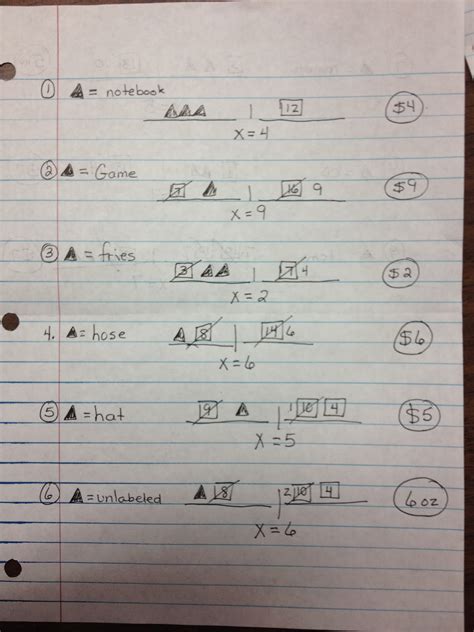 ① = notebook
12 $4
x = 4
② = Game
7 16 9 $9
x = 9
③ = fries
3 7 4 $2
x = 2
4. = hose
8 14 6 $6
x = 6
⑤ = hat
9 1 10 4 $5
x = 5
⑥ = unlabeled
8 2 10 4 6 oz
x = 6